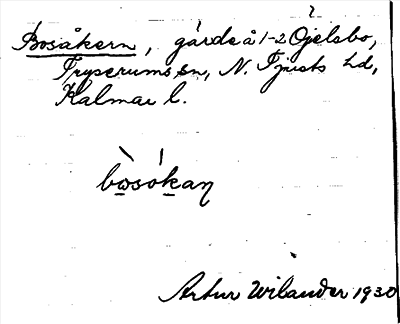 Bosåkern, gärde å 1-2 Öjelsbo,
Tryserums sn, N. Tjusts hd,
Kalmar l.
bo̲sók̲aŋ
Artur Wilander 1930